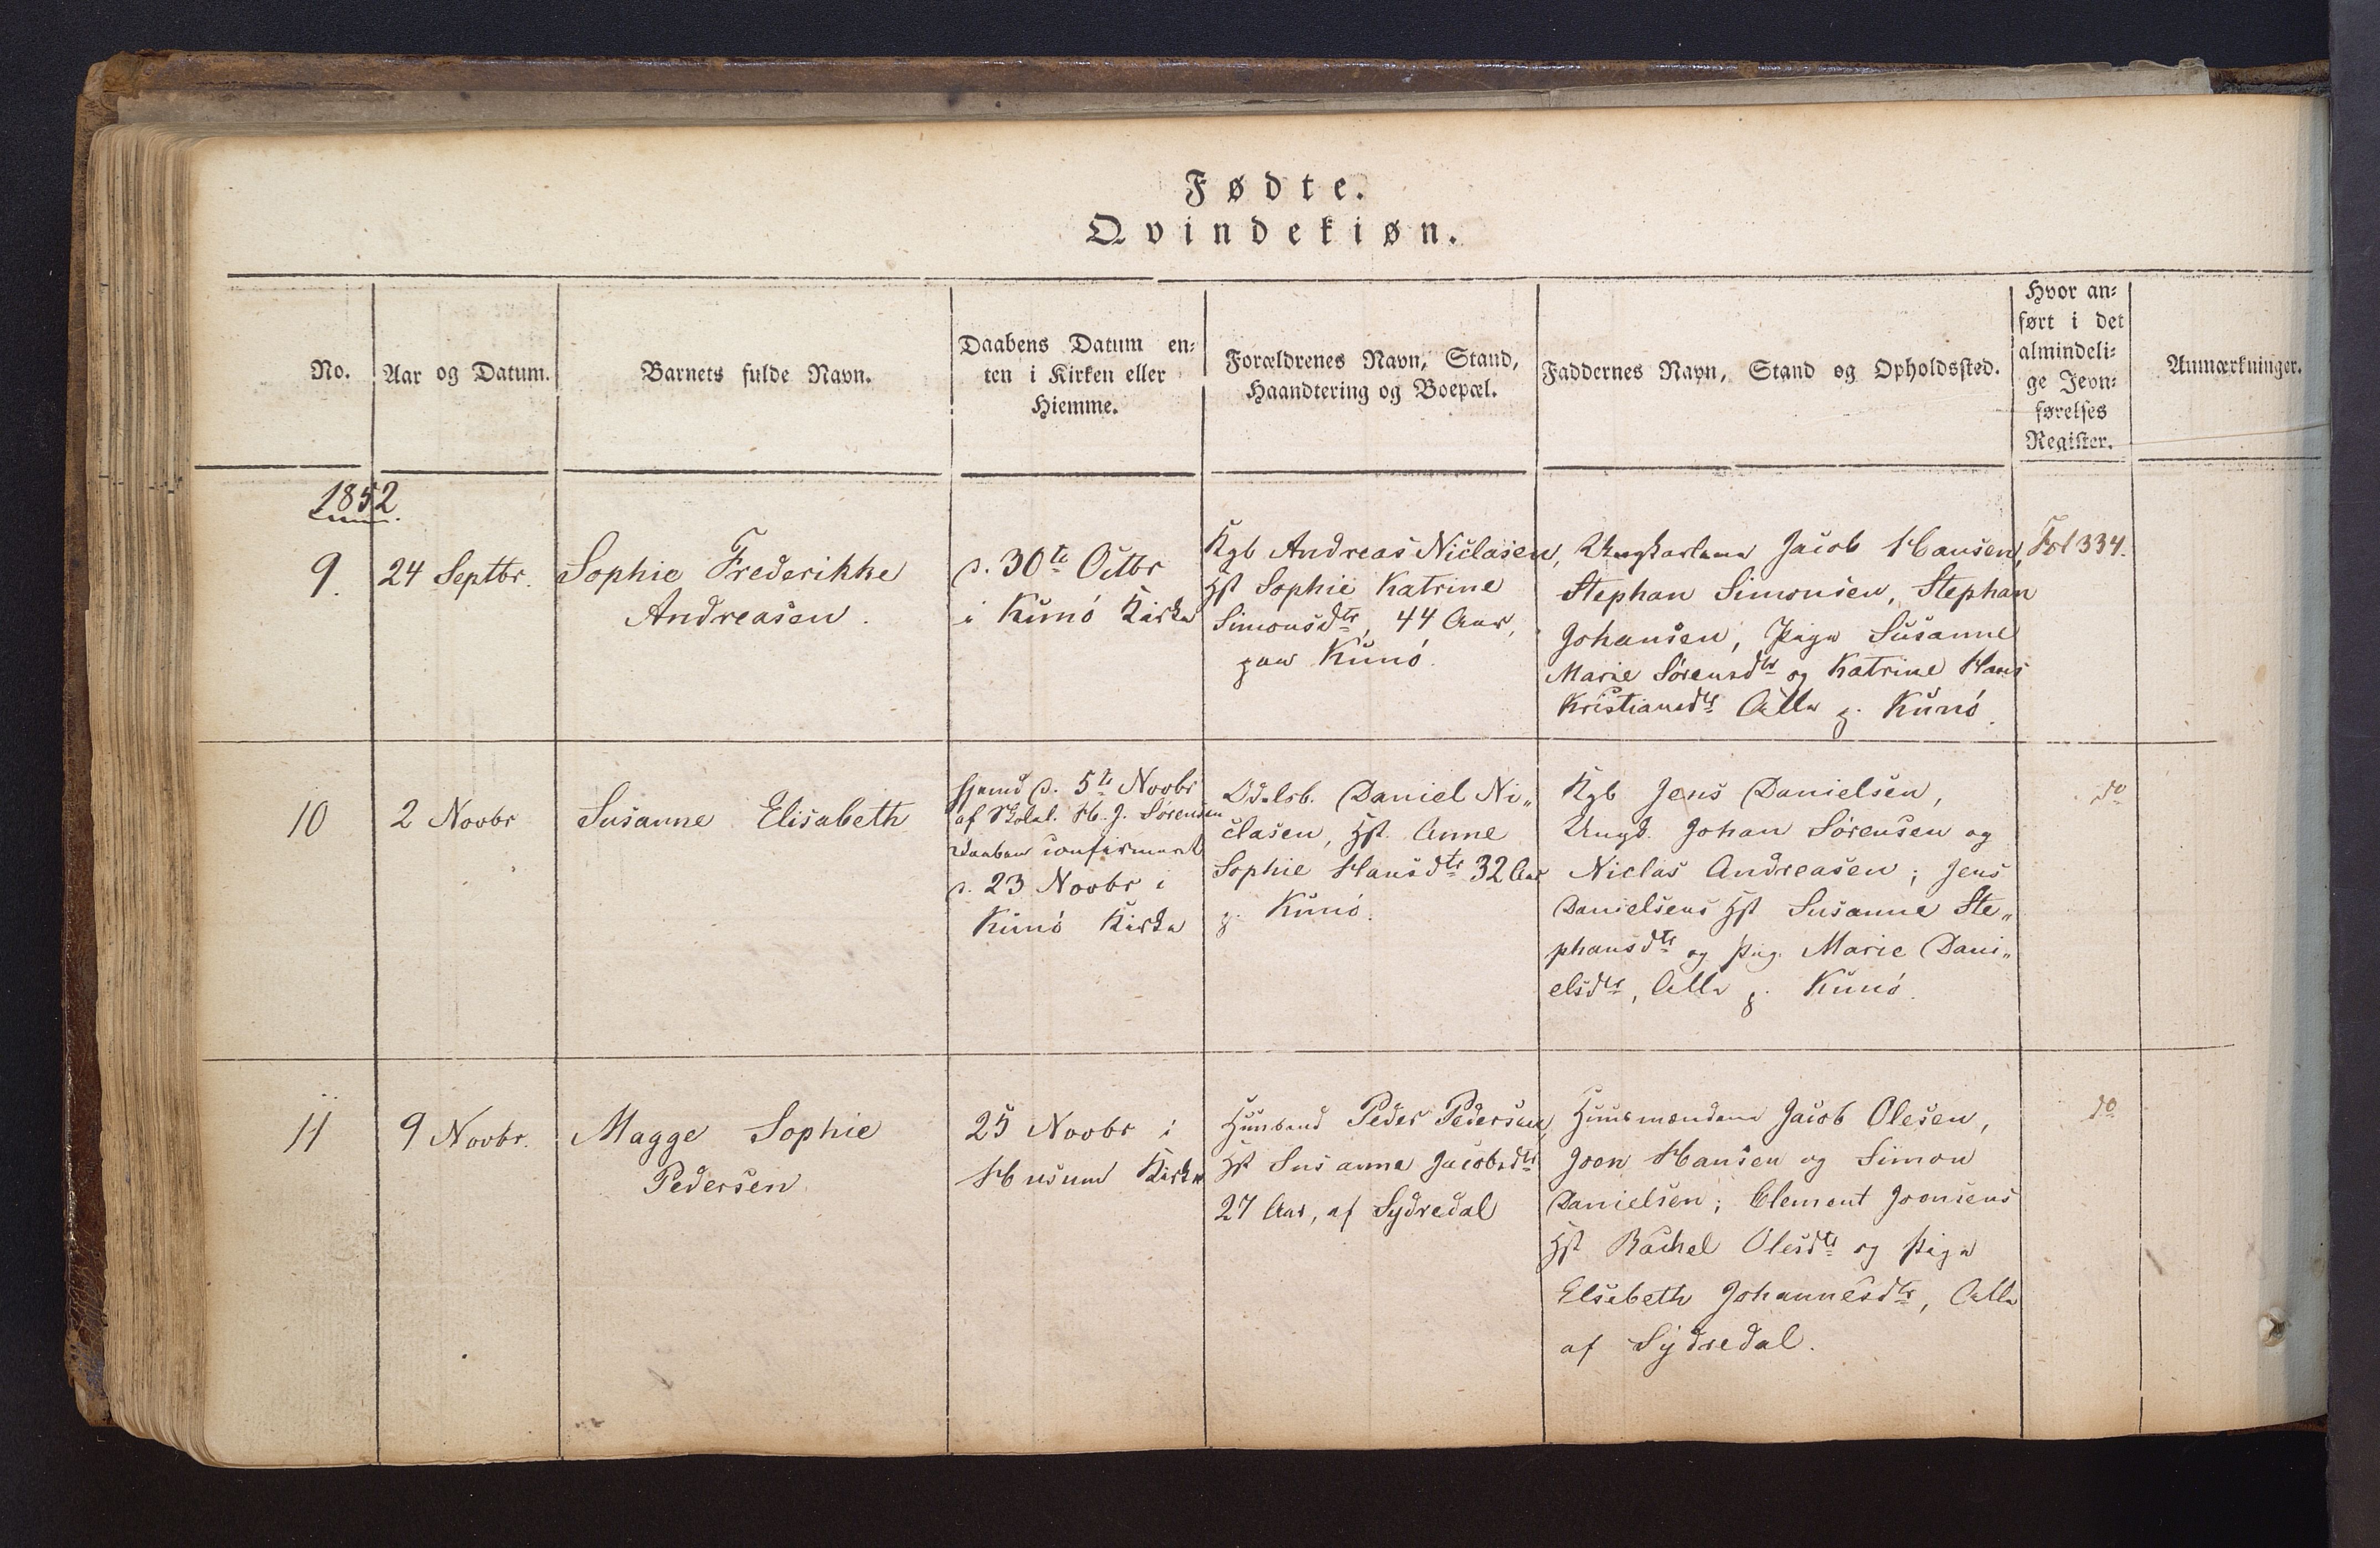 Fødte.
Qvindekiøn.
No.
Aar og Datum.
Barnets fulde Navn.
Daabens Datum en-
ten i Kirken eller
Hiemme.
Forældrenes Navn, Stand,
Haandtering og Boepæl.
Faddernes Navn, Stand og Opholdssted.
Hvor an-
ført i det
almindeli-
ge Jevn-
førelses
Register.
Anmærkninger.
1852.
9.
24 Septbr.
Sophie Frederikke
Andreasen.
d. 30te Octbr
i Kunø Kirke
Kgb Andreas Niclasen,
Hst Sophie Katrine
Simonsdtr, 44 Aar,
paa Kunø.
Ungkarlene Jacob Hansen,
Stephan Simonsen, Stephan
Johansen, Piger Susanne
Marie Sørensdtr og Katrine Hans
Kristiansdtr Alle p. Kunø.
Fol 334.
10
2 Novbr
Susanne Elisabeth
hjemd d. 5te Novbr
af Skolel. H. J. Sørensen
Daaben confirmeret
d. 23 Novbr i
Kunø Kirke
Odelsb. Daniel Ni„
clasen, Hst. Anne
Sophie Hansdtr 32 Aar
p. Kunø.
Kgb Jens Danielsen,
Ungk. Johan Sørensen og
Niclas Andreasen; Jens
Danielsens Hst Susanne Ste„
phansdtr og Pig. Marie Dani„
elsdtr, Alle p. Kunø.
do
11
9 Novbr.
Magge Sophie
Pedersen
25 Novbr i
Husum Kirke
Huusmd Peder Pedersen,
Hst Susanne Jacobsdtr
27 Aar, af Sydredal
Huusmændene Jacob Olesen,
Joen Hansen og Simon
Danielsen; Clement Joensens
Hst Rachel Olesdtr og Pige
Elsebeth Johannesdtr, Alle
af Sydredal.
do